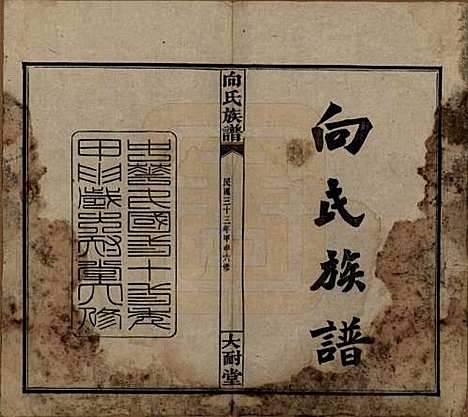 向氏族譜
向氏族譜
民國三十三年甲申六修
大耐堂
中華民國三十三年
甲申歲大耐堂六修